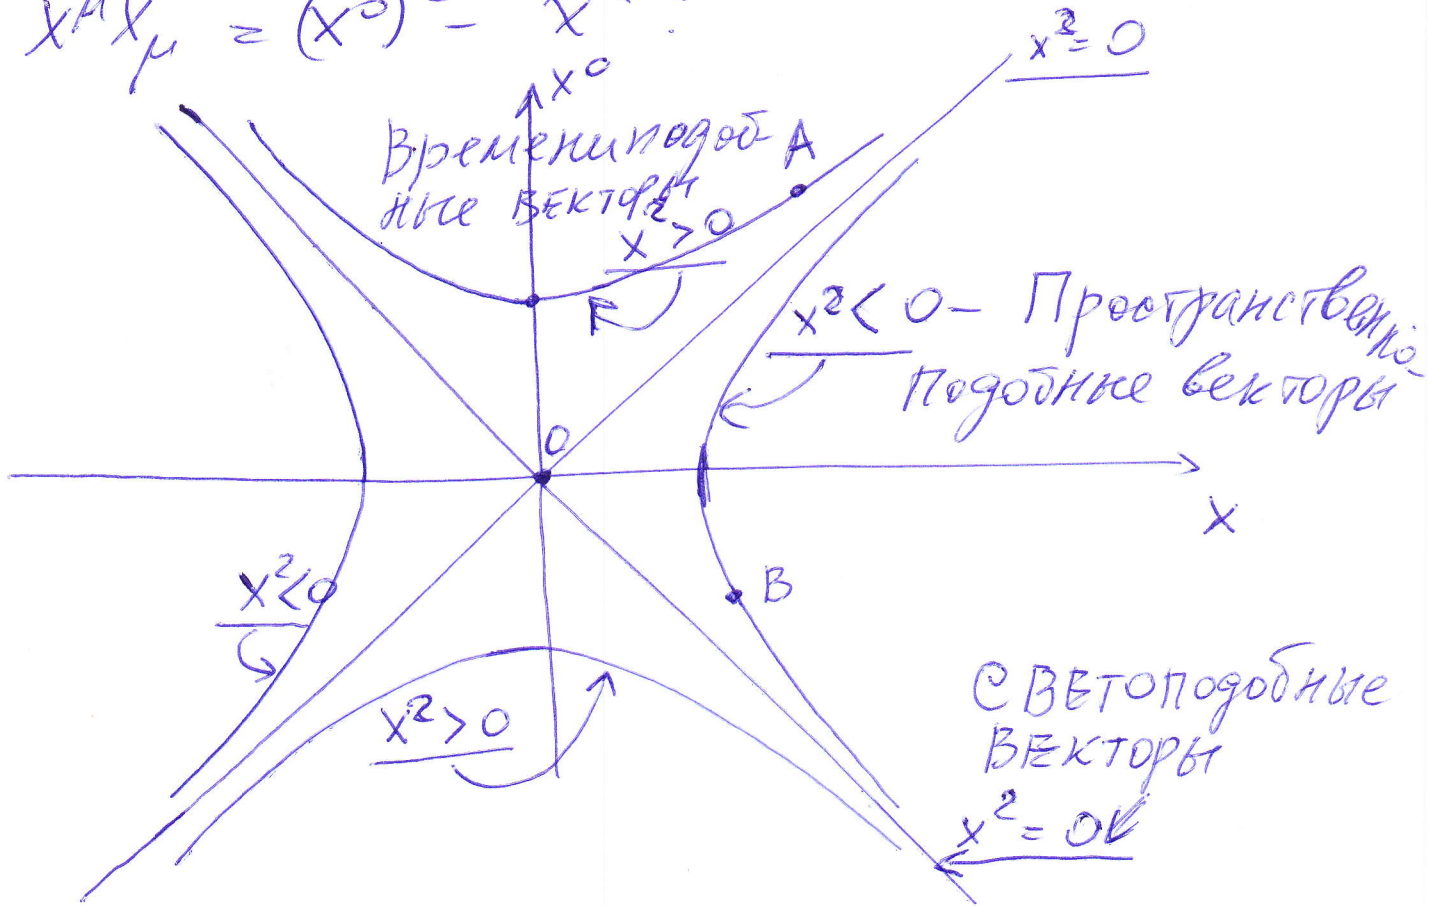 x^μ x_μ = (x⁰)² - x
x² = 0
x⁰
Времениподоб-
ные векторы
A
x² > 0
x² < 0 - Пространственно-
подобные векторы
O
x
x² < 0
B
Светоподобные
векторы
x² > 0
x² = 0